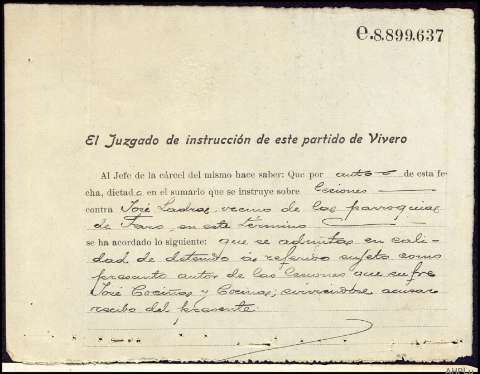 e.8.899.637
El Juzgado de instrucción de este partido de Vivero
Al Jefe de la cárcel del mismo hace saber: Que por auto de esta fe-
cha, dictado en el sumario que se instruye sobre lesiones
contra José Ladra, vecino de la parroquia
de Faro, en este término
se ha acordado lo siguiente: que se admita en cali-
dad de detenido al referido sujeto como
presunto autor de las lesiones que sufre
José Cociña y Cociña; sirviéndose acusar
recibo del presente.